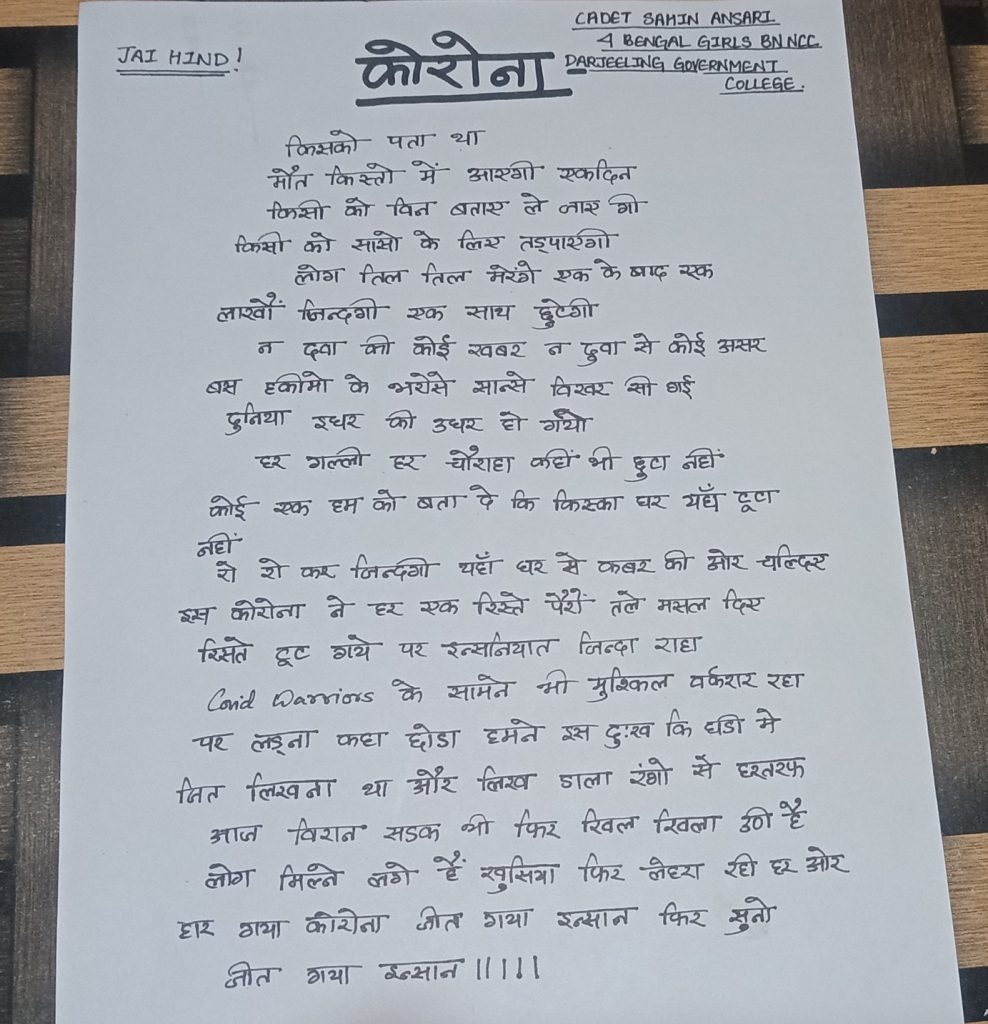 JAI HIND!
CADET SAHIN ANSARI
4 BENGAL GIRLS BN NCC
DARJEELING GOVERNMENT
COLLEGE.
कोरोना
किसको पता था
मौत किस्तो में आएगी एकदिन
किसी को विन बताए ले जाए गी
किसी को सासो के लिए तड़पाएगी
लोग तिल तिल मेरंगे एक के बाद एक
लाखौं जिन्दगी एक साथ छुटेगी
न दवा की कोई खबर न दुवा से कोई असर
बस हकीमो के भरोसे सान्से विखर सी गई
दुनिया इधर की उधर हो गयी
हर गल्ली हर चौराहा कहीं भी छुटा नहीं
कोई एक हम को बता दे कि किसका घर यहाँ टूटा
नहीं
रो रो कर जिन्दगी यहाँ घर से कबर की ओर चल्दिए
इस कोरोना ने हर एक रिस्ते पैरों तले मसल दिए
रिस्ते टूट गये पर इन्सानियात जिन्दा राहा
Covid Warriors के सामने भी मुश्किल वर्करार रहा
पर लड़ना कहा छोडा हमने इस दुःख कि घडि मे
जित लिखना था और लिख डाला रंगो से हरतरफ
आज विरान सडक भी फिर खिल खिला उठी है
लोग मिल्ने लगे हैं खुसिया फिर लेहरा रही हर ओर
हार गया कोरोना जीत गया इन्सान फिर सुनो
जीत गया इन्सान ।।।।।